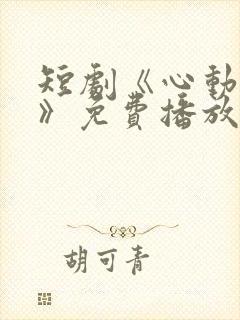 短劇《心動
》免費播放
胡可青